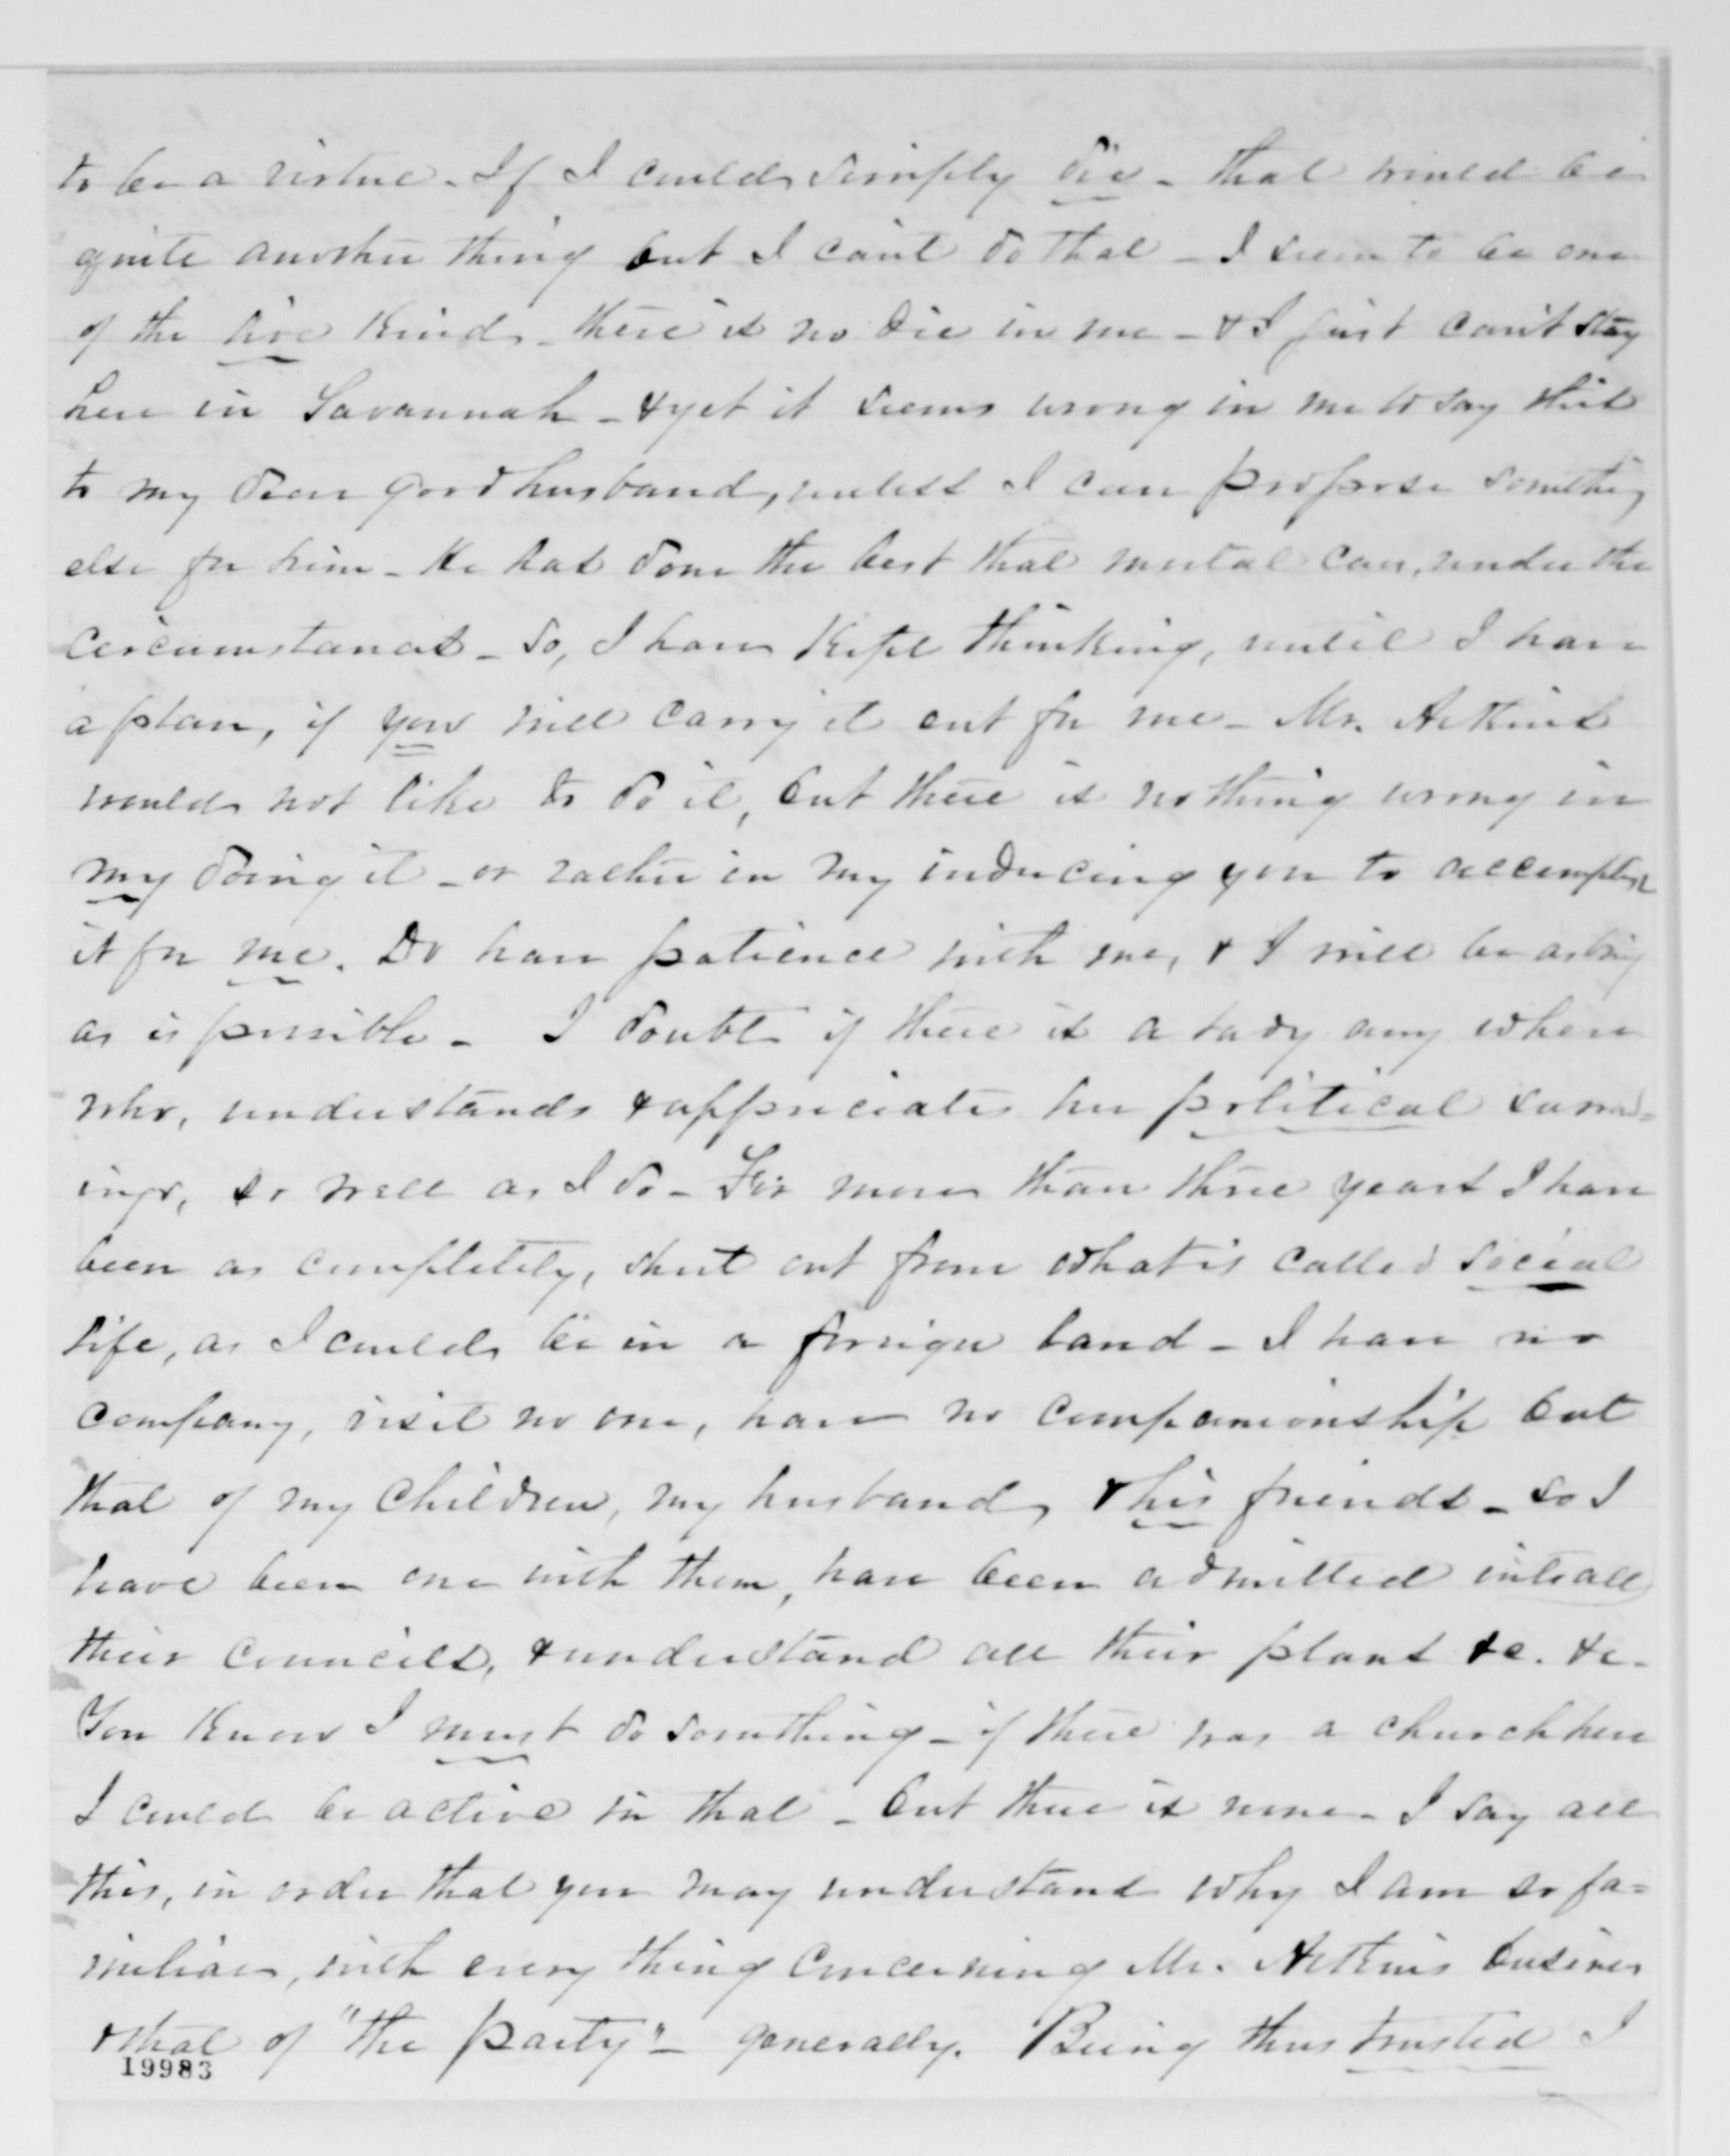 to be a virtue. If I could simply die - that would be
quite another thing but I can't do that - I seem to be one
of the live kind - there is no die in me - & I just can't stay
here in Savannah - & yet it seems wrong in me to say this
to my dear good husband, unless I can propose something
else for him - He has done the best that mortal can, under the
circumstances - So, I have kept thinking, until I have
a plan, if you will carry it out for me - Mr. Atkins
would not like to do it, but there is nothing wrong in
my doing it - or rather in my inducing you to accomplish
it for me. Do have patience with me, & I will be as brief
as is possible - I doubt if there is a lady any where
who, understands & appreciates her political surround=
ings, so well as I do - For more than three years I have
been as completely, shut out from what is called social
life, as I could be in a foreign land - I have no
company, visit no one, have no companionship but
that of my children, my husband, & his friends - so I
have been one with them, have been admitted into all
their councils, & understand all their plans &c. &c.
You know I must do something - if there was a church here
I could be active in that - but there is none - I say all
this, in order that you may understand why I am so fa=
miliar, with every thing concerning Mr. Atkins business
& that of "the party" - generally. Being thus trusted I
19983